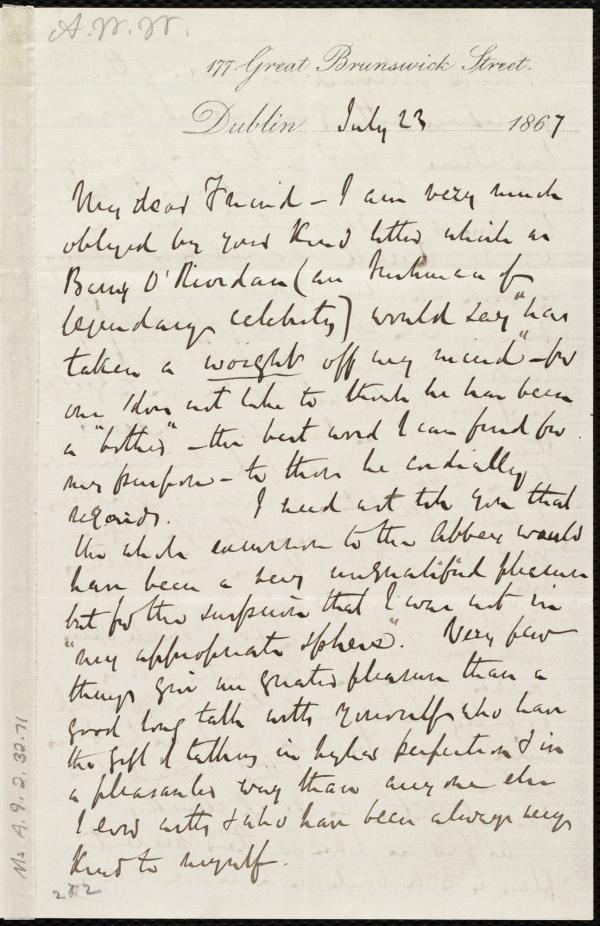 A.W.W.
177. Great Brunswick Street.
Dublin July 23 1867
My dear Friend – I am very much
obliged by your kind letter which as
Barney O'Riordan (an Irishman of
legendary celebrity) would say "has
taken a woight off my mind" – for
one does not like to think he has been
a "bother" – the best word I can find for
my purpose – to those he cordially
regards. I need not tell you that
the whole excursion to the Abbey would
have been a very unqualified pleasure
but for the suspicion that I was not in
"my appropriate sphere". Very few
things give me greater pleasure than a
good long talk with yourself who have
the gift of talking in higher perfection & in
a pleasanter way than any one else
I ever with & who have been always very
kind to myself.
Ms. A. 9. 2. 32. 71